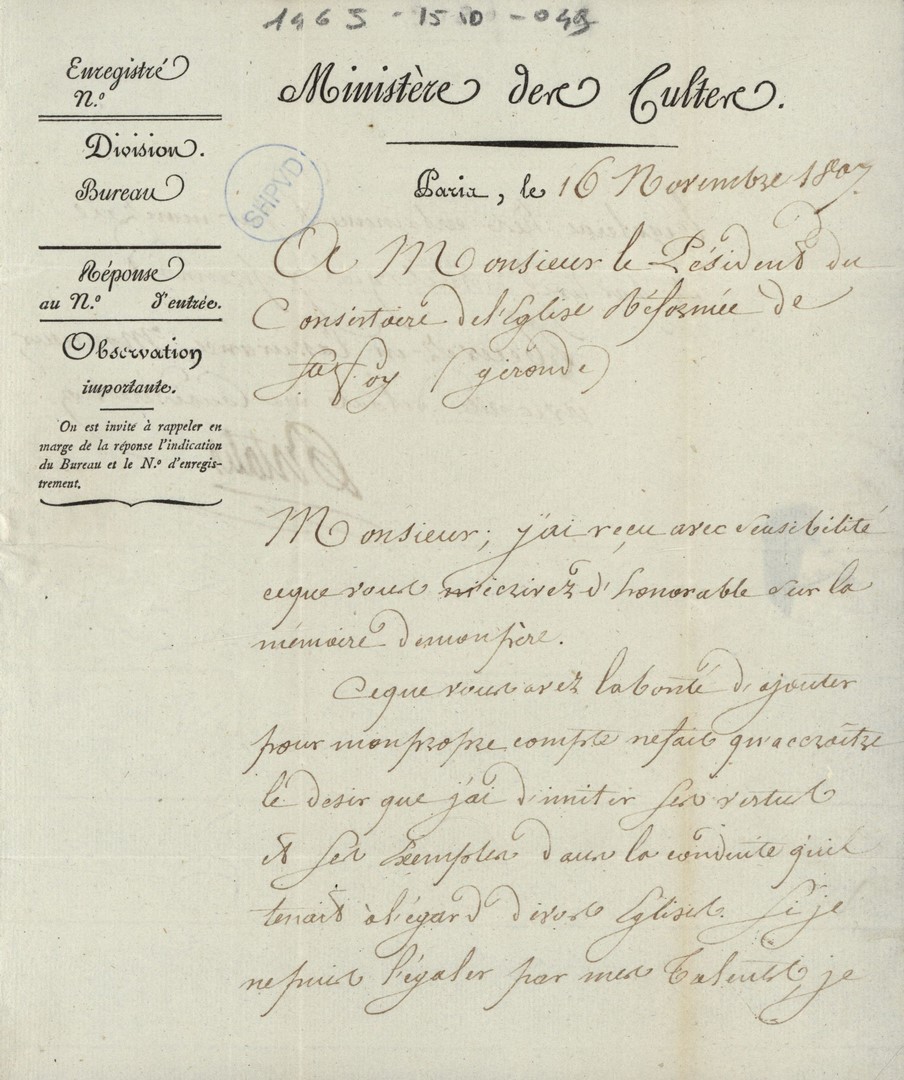 1963 - 1510 - 043
Enregistré
N.º
Division.
Bureau
Réponse
au N.º d'entrée.
Observation
importante.
On est invité à rappeler en
marge de la réponse l'indication
du Bureau et le N.º d'enregis-
trement.
SHPVD
Ministère des Cultes.
Paris, le 16 Novembre 1807
A Monsieur le Président du
Consistoire de l'Eglise Réformée de
Ste Foy (gironde)
Monsieur; j'ai reçu avec sensibilité
ce que vous m'écrivez d'honorable sur la
mémoire de mon père.
Ce que vous avez la bonté d'ajouter
pour mon propre compte ne fait qu'accroître
le desir que j'ai d'imiter ses vertus
et ses exemples dans la conduite qu'il
tenait à l'égard de vos Eglises. Si je
ne puis l'égaler par mes Talents, je